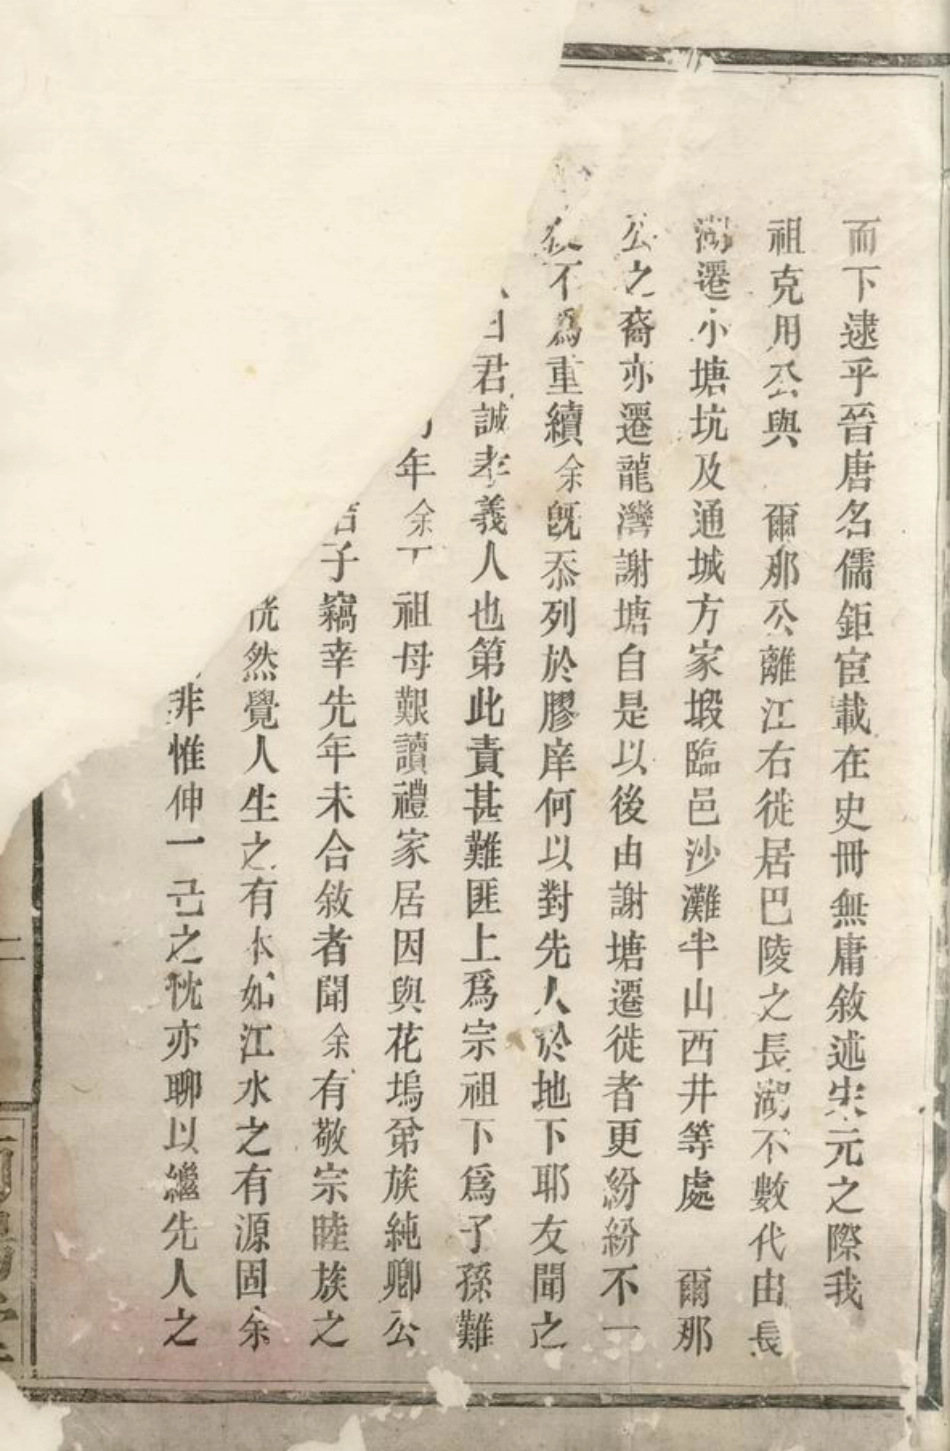 而下逮乎晉唐名儒鉅宦載在史冊無庸敘述宋元之際我
祖克用公與　爾那公離江右徙居巴陵之長湖不數代由長
湖遷小塘坑及通城方家塅臨邑沙灘半山西井等處　爾那
公之裔亦遷龍灣謝塘自是以後由謝塘遷徙者更紛紛不一
不為重續余旣忝列於膠庠何以對先人於地下耶友聞之
曰君誠孝義人也第此責甚難匪上爲宗祖下爲子孫難
年余丁祖母艱讀禮家居因與花塢第族純卿公
子竊幸先年未合敘者聞余有敬宗睦族之
恍然覺人生之有本如江水之有源固余
非惟伸一己之忱亦聊以繼先人之
二